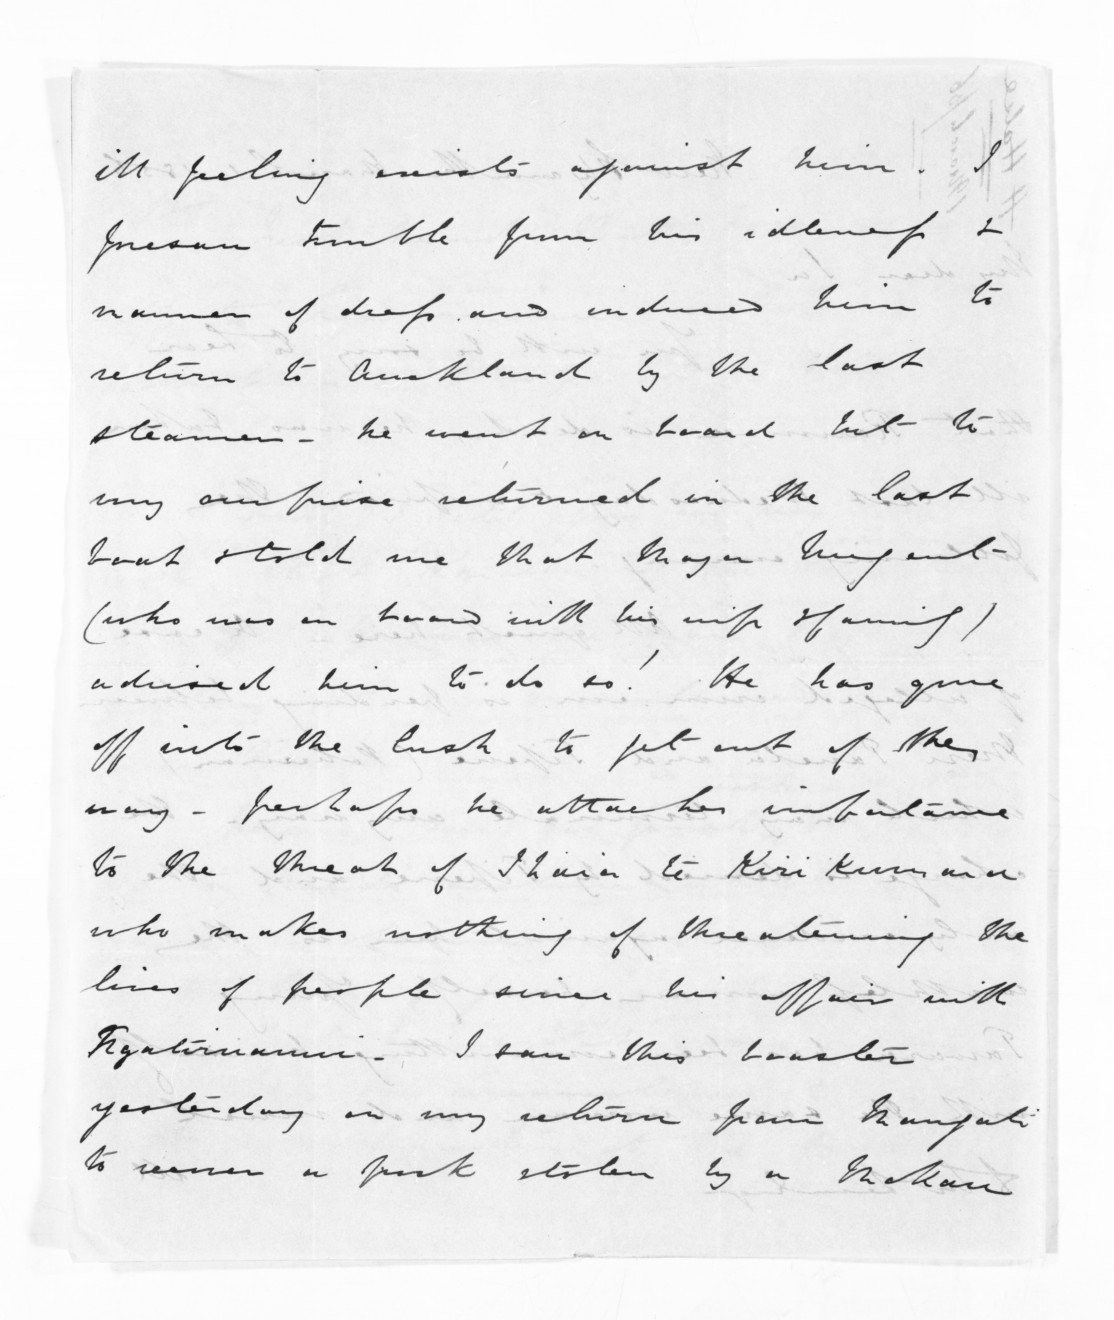 ill feeling exists against him. I
foresaw trouble from his idleness &
manner of dress and induced him to
return to Auckland by the last
steamer - he went on board but to
my surprise returned in the last
boat & told me that Major Nugent
(who was on board with his wife & family)
advised him to do so! He has gone
off into the bush to get out of the
way - perhaps he attaches importance
to the threat of Ihaia te Kiri Kumara
who makes nothing of threatening the
lives of people since his affair with
Ngatiruanui. I saw this boaster
yesterday on my return from Mangati
to recover a fork stolen by a